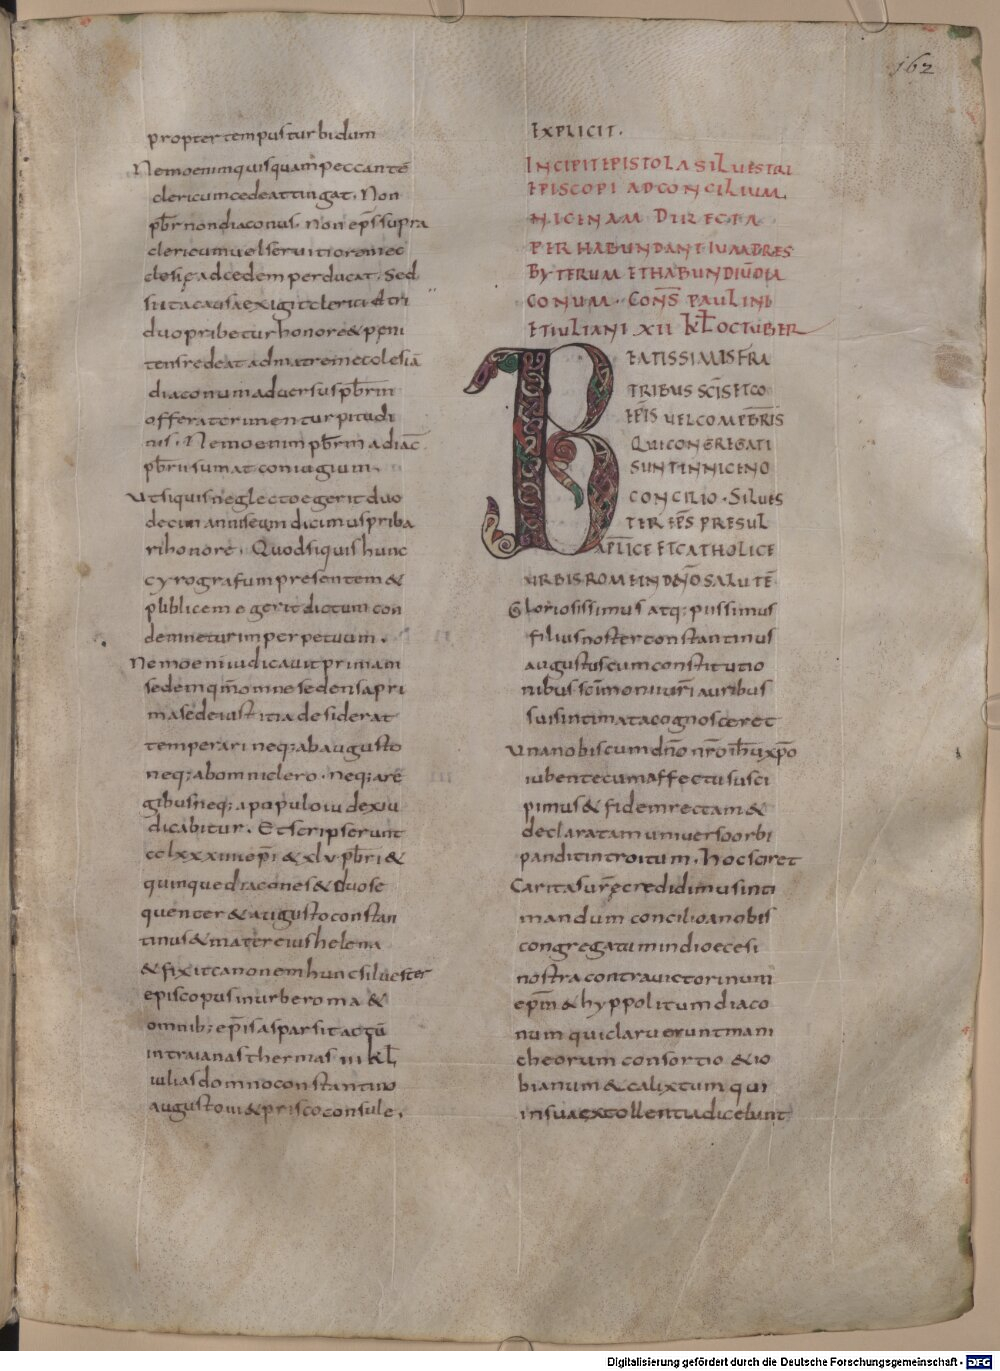 162
propter tempus turbidum
Nemo enim quisquam peccantē
clericum cedeat tingat. Non
pb̄r non diaconus. Non ep̄s supra
clericum uel seruitiorem ec
clesię ad cedem perducat. Sed
si ita causa exigit clerici et tri
duo pribetur honore & peni
tens redeat ad matrem eccolesiā
diaconum aduersus pb̄rm
offerat crimen turpitudi
nis. Nemo enim pb̄rm a diac̄
pb̄rii sumat coniugium.
Ut si quis neglecto egerit duo
decim annis eum dicimus priba
ri honore. Quod si quis hunc
cyrografum presentem &
publicem egerit dictum con
demnetur imperpetuum.
Nemo eni iudicauit primam
sedem qm̄ omne sedens a pri
ma sede iustitia desiderat
temperari neq; ab augusto
neq; ab omni clero. neq; a rē
gibus neq; a populo iudex iu
dicabitur. Et scripserunt
cclxxxiiii ep̄i & xlv pb̄ri &
quinque diacones & duo se
quenter & augusto constan
tinus & mater eius helena
& fixit canonem hunc siluester
episcopus in urbe roma &
omnib; ep̄is asparsit actū
in traianas thermas iii kł
iulias domno constantino
augusto iii & prisco consule.
EXPLICIT.
INCIPIT EPISTOLA SILUESTRI
EPISCOPI AD CONCILIUM
NICENAM DIRECTA
PER HABUNDANTIUM PRES
BYTERUM ET HABUNDIŪ DIA
CONUM. CONS̄ PAULINI
ET IULIANI XII KŁ OCTUBER
BEATISSIMIS FRA
TRIBUS SC̄IS ET CO
EP̄IS UEL COMPB̄RIS
QUI CONGREGATI
SUNT IN NICENO
CONCILIO. SILUES
TER EP̄S PRESUL
AP̄LICE ET CATHOLICE
URBIS ROME IN DN̄O SALUTĒ
Gloriosissimus atq; piissimus
filius noster constantinus
augustus cum constitutio
nibus sc̄imoniu ur̄i auribus
suis intimata cognosceret
Una nobiscum dn̄o nr̄o ih̄u xp̄o
iubente cum affectu susci
pimus & fidem rectam &
declaratam uniuerso orbi
pandit introitum. Hoc sciret
Caritas ur̄e credidimus inti
mandum concilio a nobis
congregatum in dioecesi
nostra contra uictorinum
ep̄m & hyppolitum diaco
num qui claruerunt mani
cheorum consortio & io
bianum & calixtum qui
in sua extollentia dicebunt
Digitalisierung gefördert durch die Deutsche Forschungsgemeinschaft - DFG